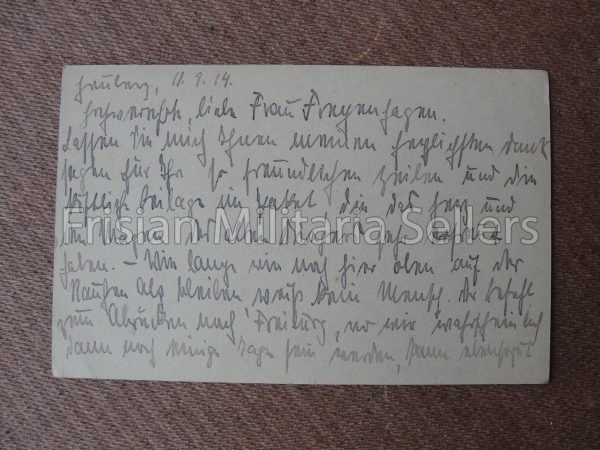 Heuberg, 11.9.14.
Hochverehrte, liebe Frau Freyenhagen.
Lassen Sie mich Ihnen meinen herzlichsten Dank
sagen für Ihr so freundlichen Zeilen und die
köstliche Beilage im Paket die das Herz und
Frisian Militaria Sellers
den Magen des alten sehr
haben. – Wie lange wir noch hier oben auf der
Rauhen Alb bleiben weiß kein Mensch. Der Befehl
zum Abrücken nach Freiburg, wo wir wahrscheinlich
dann noch einige Tage sein werden, kann ebensogut